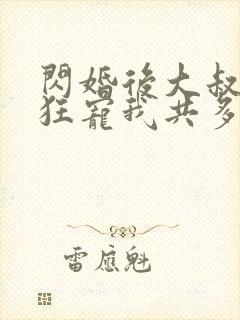 閃婚後大叔
狂寵我共多
雷應魁